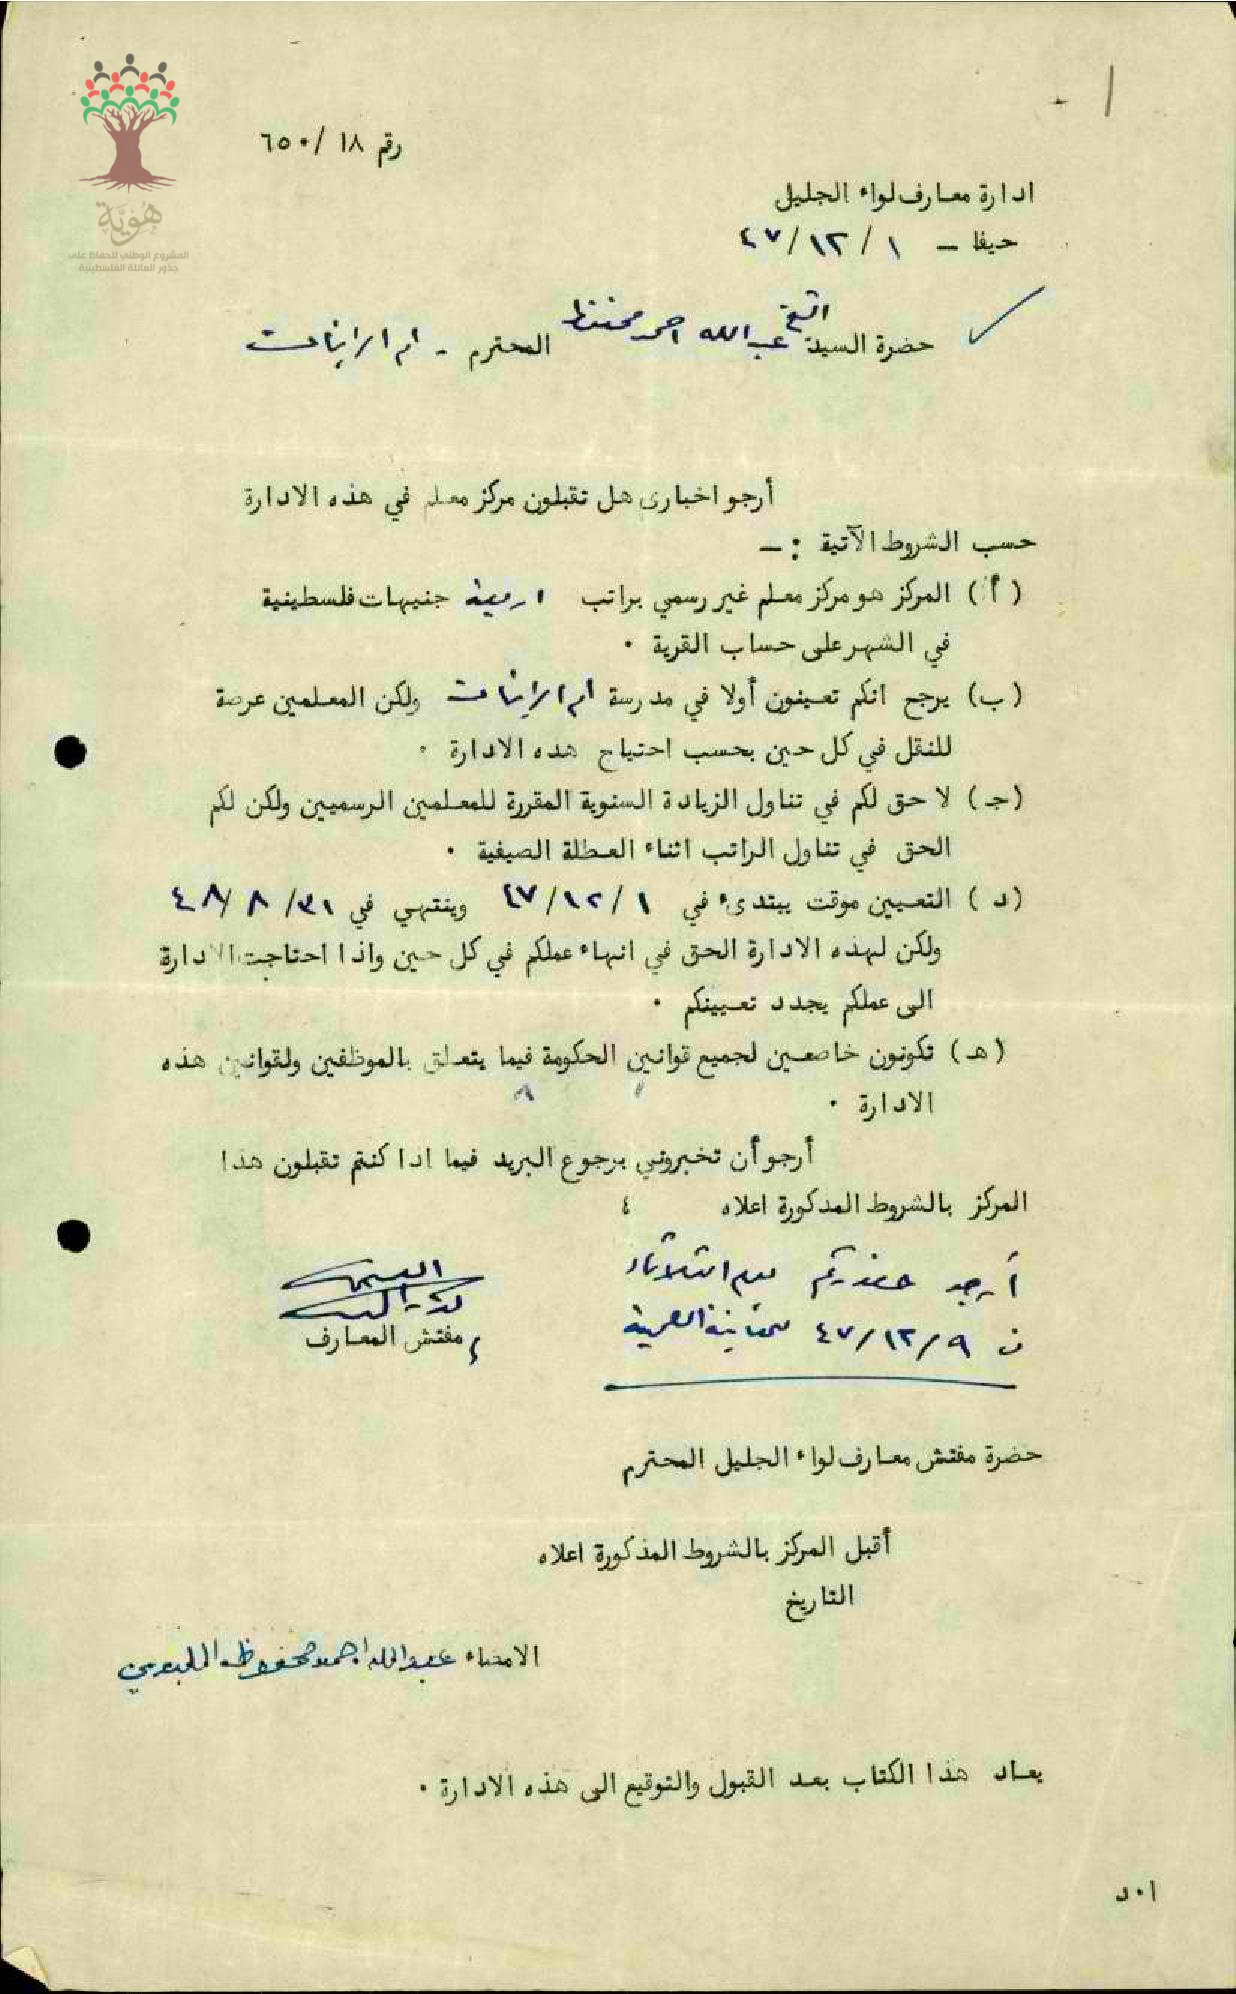 هُوِيَّة
المشروع الوطني للحفاظ على
جذور العائلة الفلسطينية
رقم ١٨ /٦٥٠
ادارة معارف لواء الجليل
حيفا – ١ /١٢ /٤٧
حضرة السيد الشيخ عبد الله احمد محفوظ المحترم - ام الزينات
أرجو اخباري هل تقبلون مركز معلم في هذه الادارة
حسب الشروط الآتية : –
(أ) المركز هو مركز معلم غير رسمي براتب اربعة جنيهات فلسطينية
في الشهر على حساب القرية .
(ب) يرجح انكم تعينون أولا في مدرسة ام الزينات ولكن المعلمين عرضة
للنقل في كل حين بحسب احتياج هذه الادارة .
(جـ) لا حق لكم في تناول الزيادة السنوية المقررة للمعلمين الرسميين ولكن لكم
الحق في تناول الراتب اثناء العطلة الصيفية .
(د) التعيين موقت يبتدىء في ١ /١٢ /٤٧ وينتهي في ٣١ /٨ /٤٨
ولكن لهذه الادارة الحق في انهاء عملكم في كل حين واذا احتاجت الادارة
الى عملكم يجدد تعيينكم .
(هـ) تكونون خاضعين لجميع قوانين الحكومة فيما يتعلق بالموظفين ولقوانين هذه
الادارة .
أرجو أن تخبروني برجوع البريد فيما اذا كنتم تقبلون هذا
المركز بالشروط المذكورة اعلاه ٤
أرجو حضوركم يوم الثلاثاء
في ٩ /١٢ /٤٧
مفتش المعارف
حضرة مفتش معارف لواء الجليل المحترم
أقبل المركز بالشروط المذكورة اعلاه
التاريخ
الامضاء عبدالله احمد محفوظ
يعاد هذا الكتاب بعد القبول والتوقيع الى هذه الادارة .
ا٠د